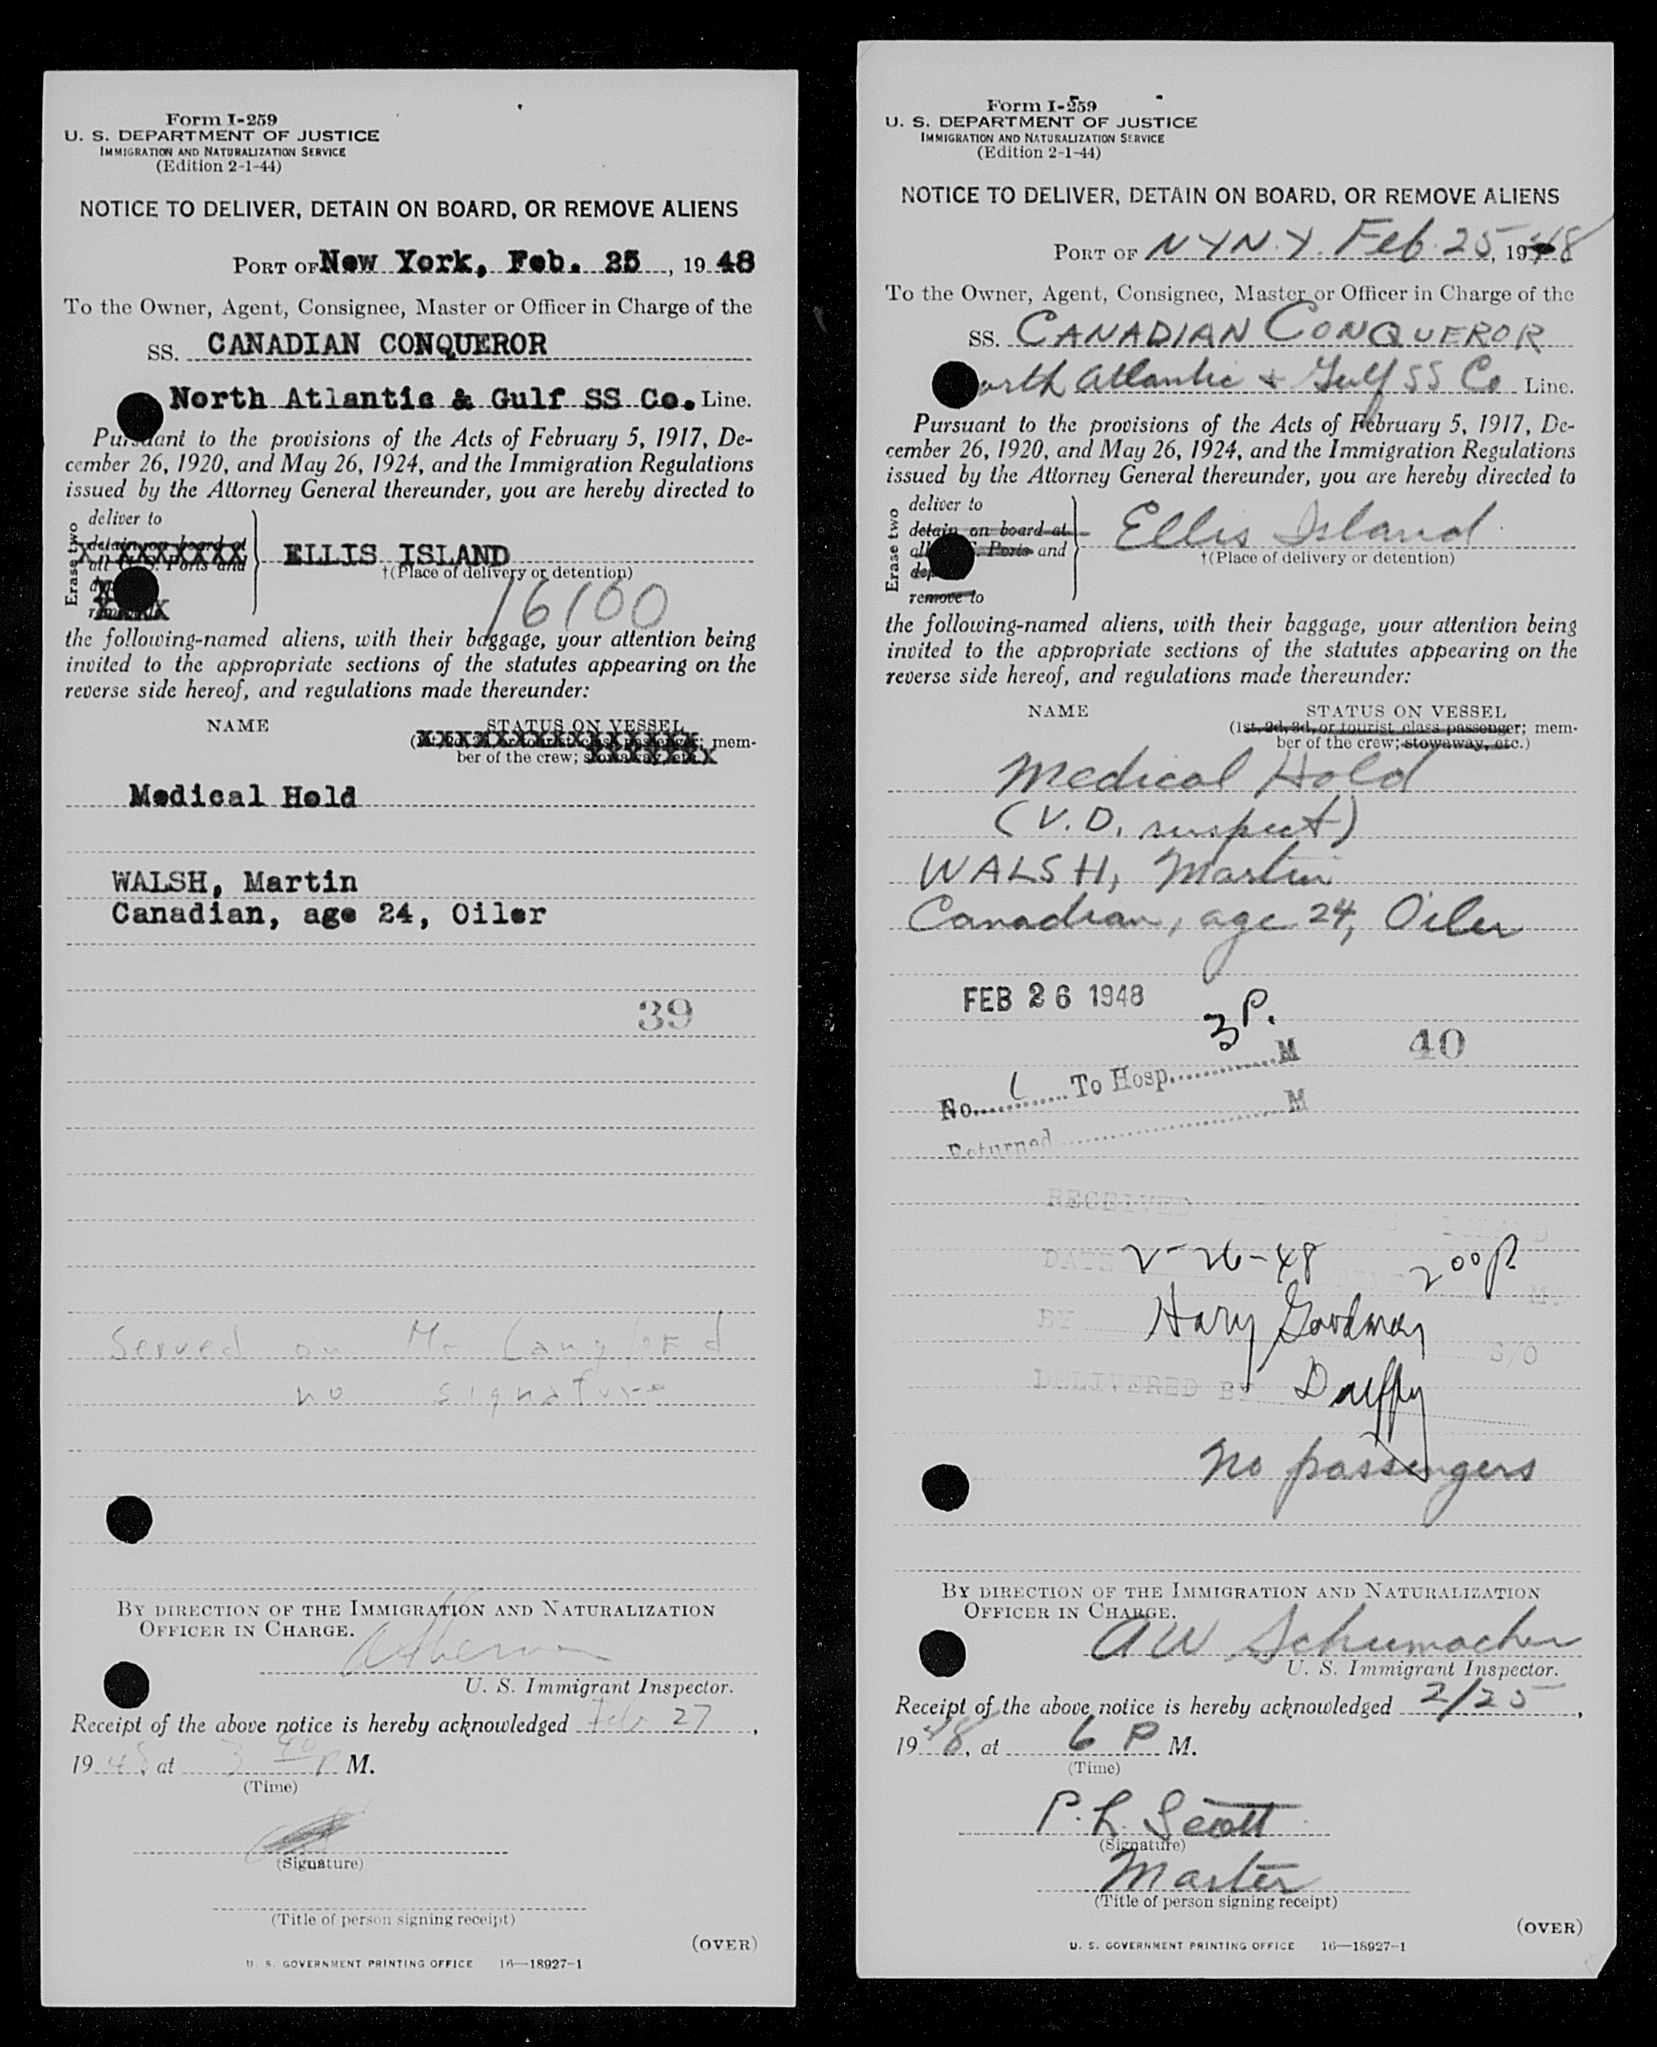 Form I-259
U. S. DEPARTMENT OF JUSTICE
IMMIGRATION AND NATURALIZATION SERVICE
(Edition 2-1-44)
NOTICE TO DELIVER, DETAIN ON BOARD, OR REMOVE ALIENS
PORT OF New York, Feb. 25, 1948
To the Owner, Agent, Consignee, Master or Officer in Charge of the
SS. CANADIAN CONQUEROR
North Atlantic & Gulf SS Co. Line.
Pursuant to the provisions of the Acts of February 5, 1917, De-
cember 26, 1920, and May 26, 1924, and the Immigration Regulations
issued by the Attorney General thereunder, you are hereby directed to
Erase two
deliver to
detain on board at
all U. S. Ports and
ELLIS ISLAND
†(Place of delivery or detention)
16100
the following-named aliens, with their baggage, your attention being
invited to the appropriate sections of the statutes appearing on the
reverse side hereof, and regulations made thereunder:
NAME STATUS ON VESSEL
(1st, 2d, 3d, or tourist class passenger; mem-
ber of the crew; stowaway, etc.)
Medical Hold
WALSH, Martin
Canadian, age 24, Oiler
39
Served on Mr Langford
no signature
BY DIRECTION OF THE IMMIGRATION AND NATURALIZATION
OFFICER IN CHARGE.
U. S. Immigrant Inspector.
Receipt of the above notice is hereby acknowledged Feb 27,
1948, at 3 40 P M.
(Time)
(Signature)
(Title of person signing receipt)
(OVER)
U. S. GOVERNMENT PRINTING OFFICE 16—18927-1
Form I-259
U. S. DEPARTMENT OF JUSTICE
IMMIGRATION AND NATURALIZATION SERVICE
(Edition 2-1-44)
NOTICE TO DELIVER, DETAIN ON BOARD, OR REMOVE ALIENS
PORT OF N Y N.Y. Feb. 25, 1948
To the Owner, Agent, Consignee, Master or Officer in Charge of the
SS. CANADIAN CONQUEROR
North Atlantic & Gulf SS Co Line.
Pursuant to the provisions of the Acts of February 5, 1917, De-
cember 26, 1920, and May 26, 1924, and the Immigration Regulations
issued by the Attorney General thereunder, you are hereby directed to
Erase two
deliver to
detain on board at
all U. S. Ports and
remove to
Ellis Island
†(Place of delivery or detention)
the following-named aliens, with their baggage, your attention being
invited to the appropriate sections of the statutes appearing on the
reverse side hereof, and regulations made thereunder:
NAME STATUS ON VESSEL
(1st, 2d, 3d, or tourist class passenger; mem-
ber of the crew; stowaway, etc.)
Medical Hold
(V.D. suspect)
WALSH, Martin
Canadian, age 24, Oiler
FEB 26 1948
3 P.
40
No. 1 To Hosp. M
Returned M
RECEIVED
DATE 2-26-48 2 00 P. M.
BY Harry Goodman S/O
DELIVERED BY Duffy
No passengers
BY DIRECTION OF THE IMMIGRATION AND NATURALIZATION
OFFICER IN CHARGE.
A W Schumacher
U. S. Immigrant Inspector.
Receipt of the above notice is hereby acknowledged 2/25,
1948, at 6 P M.
(Time)
P. L. Scott
(Signature)
Master
(Title of person signing receipt)
(OVER)
U. S. GOVERNMENT PRINTING OFFICE 16—18927-1